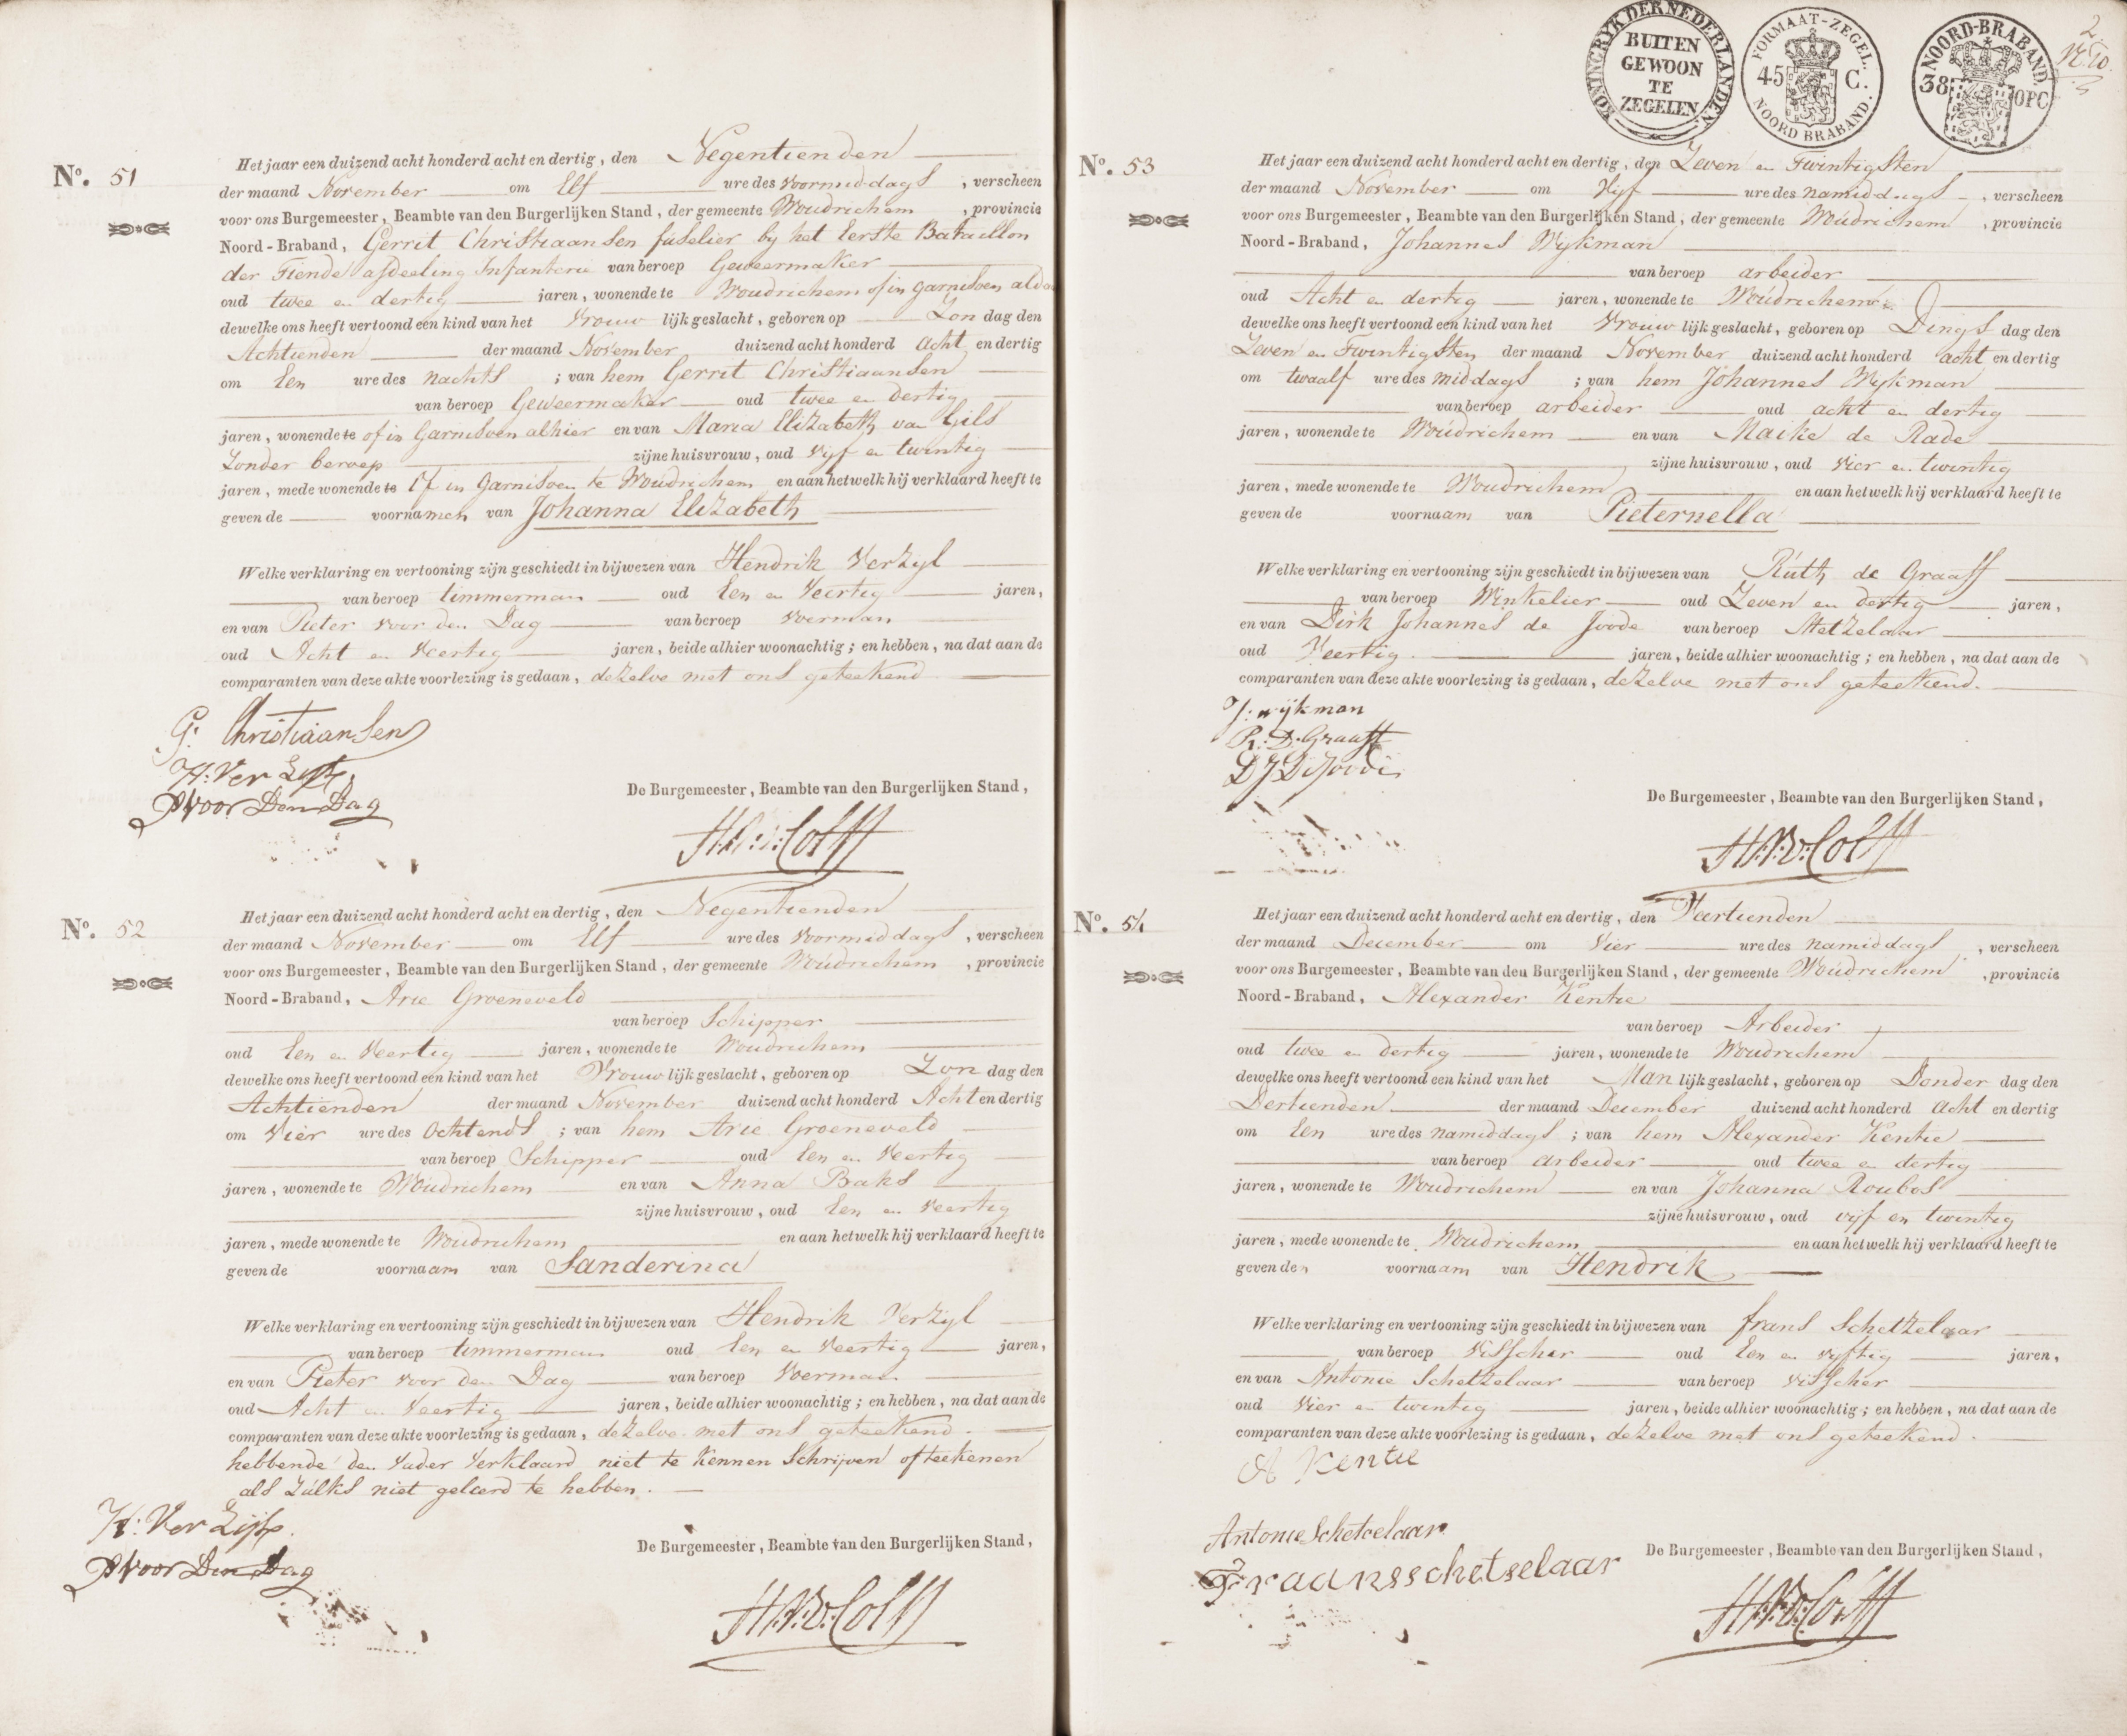 N°. 51
Het jaar een duizend acht honderd acht en dertig, den Negentienden
der maand November om Elf ure des voormiddags, verscheen
voor ons Burgemeester, Beambte van den Burgerlijken Stand, der gemeente Woudrichem, provincie
Noord-Braband, Gerrit Christiaansen fuselier by het Eerste Bataillon
der Tiende afdeeling Infanterie van beroep Geweermaker
oud twee en dertig jaren, wonende te Woudrichem of in garnisoen aldaar
dewelke ons heeft vertoond een kind van het Vrouw lijk geslacht, geboren op Zon dag den
Achtienden der maand November duizend acht honderd Acht en dertig
om Een ure des nachts; van hem Gerrit Christiaansen
van beroep Geweermaker oud twee en dertig
jaren, wonende te of in Garnisoen alhier en van Maria Elizabeth van Gils
Zonder beroep zijne huisvrouw, oud vyf en twintig
jaren, mede wonende te Of in Garnisoen te Woudrichem en aan hetwelk hij verklaard heeft te
geven de voornamen van Johanna Elizabeth
Welke verklaring en vertooning zijn geschiedt in bijwezen van Hendrik Verzyl
van beroep timmerman oud Een en Veertig jaren,
en van Pieter voor den Dag van beroep voerman
oud Acht en Veertig jaren, beide alhier woonachtig; en hebben, na dat aan de
comparanten van deze akte voorlezing is gedaan, dezelve met ons geteekend
G: Christiaansen
H: Ver Zijl
P Voor Den Dag
De Burgemeester, Beambte van den Burgerlijken Stand,
N°. 52
Het jaar een duizend acht honderd acht en dertig, den Negentienden
der maand November om Elf ure des voormiddags, verscheen
voor ons Burgemeester, Beambte van den Burgerlijken Stand, der gemeente Woudrichem, provincie
Noord-Braband, Arie Groeneveld
van beroep Schipper
oud Een en Veertig jaren, wonende te Woudrichem
dewelke ons heeft vertoond een kind van het Vrouw lijk geslacht, geboren op Zon dag den
Achtienden der maand November duizend acht honderd Acht en dertig
om Vier ure des Ochtends; van hem Arie Groeneveld
van beroep Schipper oud Een en Veertig
jaren, wonende te Woudrichem en van Anna Baks
zijne huisvrouw, oud Een en Veertig
jaren, mede wonende te Woudrichem en aan hetwelk hij verklaard heeft te
geven de voornaam van Sanderina
Welke verklaring en vertooning zijn geschiedt in bijwezen van Hendrik Verzyl
van beroep timmerman oud Een en Veertig jaren,
en van Pieter voor den Dag van beroep Voerman
oud Acht en Veertig jaren, beide alhier woonachtig; en hebben, na dat aan de
comparanten van deze akte voorlezing is gedaan, dezelve met ons geteekend.
hebbende den Vader Verklaard niet te kennen Schrijven of teekenen
als Zulks niet geleerd te hebben.
H: Ver Zijl
P Voor Den Dag
De Burgemeester, Beambte van den Burgerlijken Stand,
KONINGRYK DER NEDERLANDEN.
BUITEN
GEWOON
TE
ZEGELEN
FORMAAT-ZEGEL.
45 C.
NOORD BRABAND.
NOORD-BRABAND.
38 OPC
N°. 53
Het jaar een duizend acht honderd acht en dertig, den Zeven en Twintigsten
der maand November om Vyf ure des namiddags, verscheen
voor ons Burgemeester, Beambte van den Burgerlijken Stand, der gemeente Woudrichem, provincie
Noord-Braband, Johannes Wykman
van beroep arbeider
oud Acht en dertig jaren, wonende te Woudrichem
dewelke ons heeft vertoond een kind van het Vrouw lijk geslacht, geboren op Dings dag den
Zeven en Twintigsten der maand November duizend acht honderd acht en dertig
om twaalf ure des middags; van hem Johannes Wykman
van beroep arbeider oud acht en dertig
jaren, wonende te Woudrichem en van Maike de Rade
zijne huisvrouw, oud vier en twintig
jaren, mede wonende te Woudrichem en aan hetwelk hij verklaard heeft te
geven de voornaam van Pieternella
Welke verklaring en vertooning zijn geschiedt in bijwezen van Ruth de Graaff
van beroep Winkelier oud Zeven en dertig jaren,
en van Dirk Johannes de Joode van beroep Metzelaar
oud Veertig jaren, beide alhier woonachtig; en hebben, na dat aan de
comparanten van deze akte voorlezing is gedaan, dezelve met ons geteekend.
J: wijkman
R: D. Graaff
D J D Joode
De Burgemeester, Beambte van den Burgerlijken Stand,
N°. 54
Het jaar een duizend acht honderd acht en dertig, den Veertienden
der maand December om Vier ure des namiddags, verscheen
voor ons Burgemeester, Beambte van den Burgerlijken Stand, der gemeente Woudrichem, provincie
Noord-Braband, Alexander Kentie
van beroep Arbeider
oud twee en dertig jaren, wonende te Woudrichem
dewelke ons heeft vertoond een kind van het Man lijk geslacht, geboren op Donder dag den
Dertienden der maand December duizend acht honderd Acht en dertig
om Een ure des namiddags; van hem Alexander Kentie
van beroep arbeider oud twee en dertig
jaren, wonende te Woudrichem en van Johanna Roubos
zijne huisvrouw, oud vijf en twintig
jaren, mede wonende te Woudrichem en aan hetwelk hij verklaard heeft te
geven de voornaam van Hendrik
Welke verklaring en vertooning zijn geschiedt in bijwezen van frans Schetzelaar
van beroep Visscher oud Een en vyftig jaren,
en van Antonie Schetzelaar van beroep Visscher
oud Vier en twintig jaren, beide alhier woonachtig; en hebben, na dat aan de
comparanten van deze akte voorlezing is gedaan, dezelve met ons geteekend.
A Kentie
Antonie Schetselaar
Fraansschetselaar
De Burgemeester, Beambte van den Burgerlijken Stand,